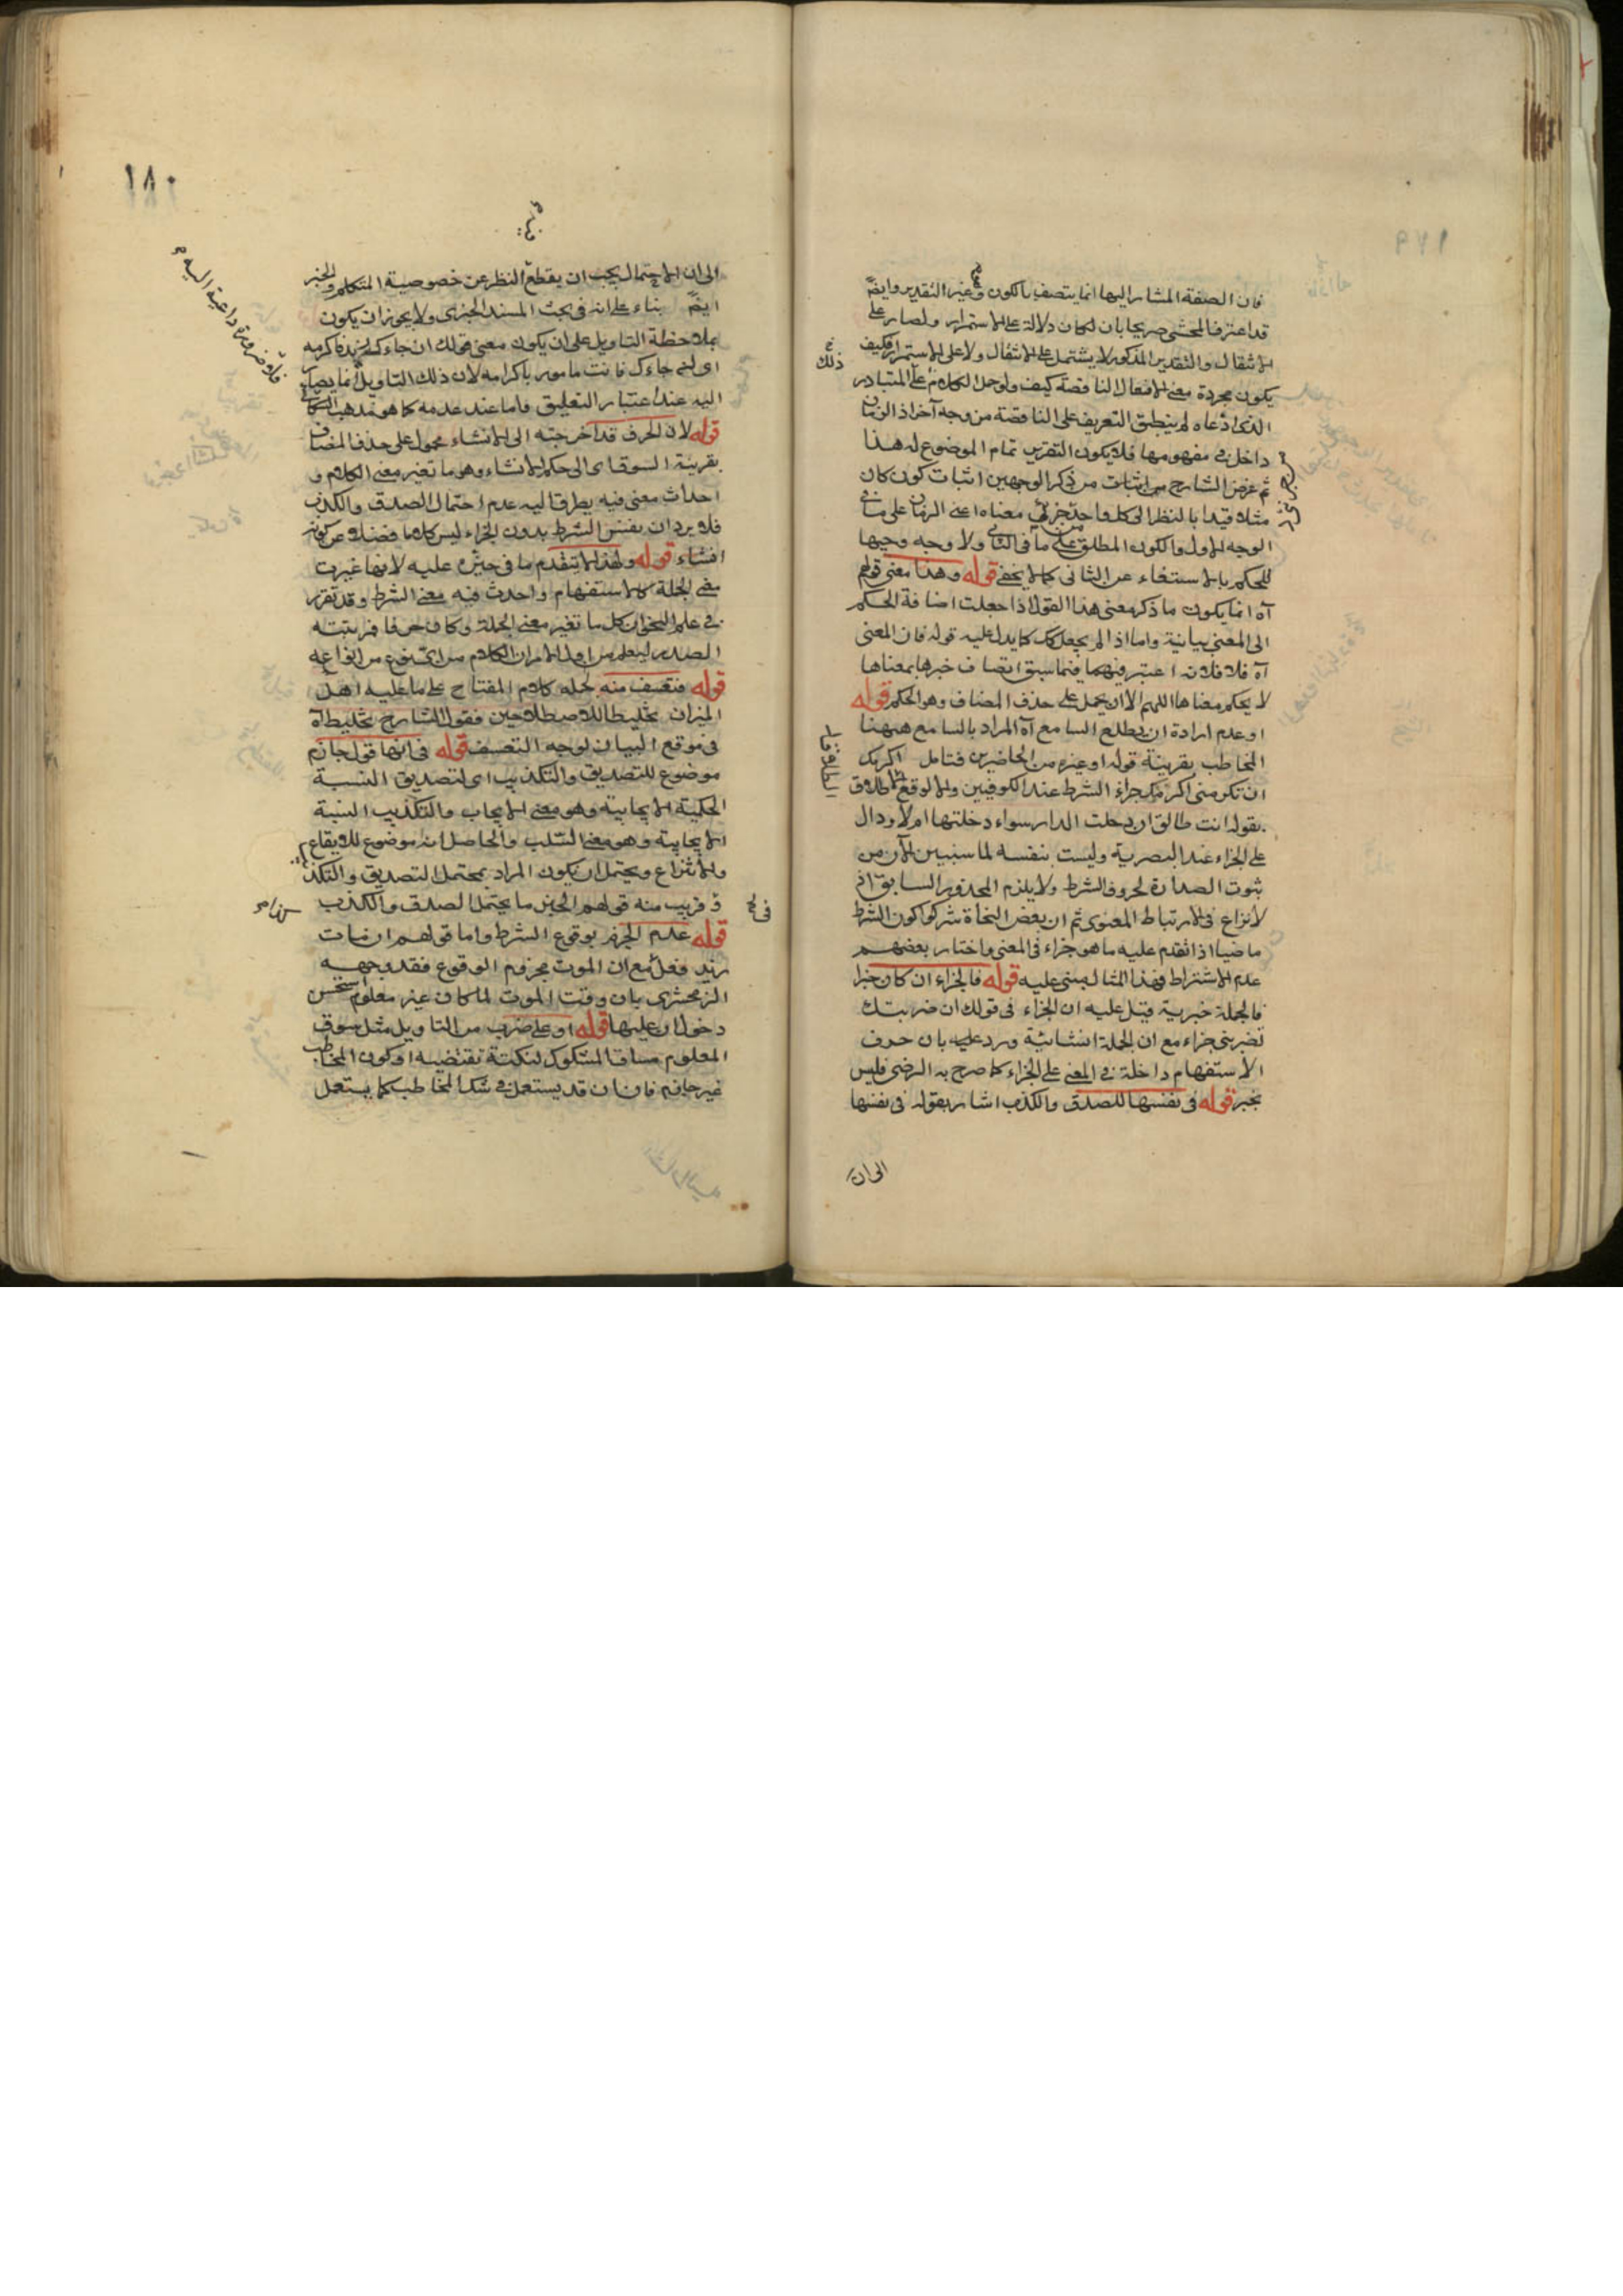 فان الصفة المشار اليها انما يتصف بالكون وغير التقدير وايضً
قد اعترف المحشى صريحا بان لكان دلالة على الاستمرار ولصار على
الانتقال والتقدير المذكور لا يشتمل على الانتقال ولا على الاستمرار فكيف
يكون مجردة معنى الافعال الناقصة كيف ولو حمل الكلام على المتبادر
الذى ادعاه لم ينطبق التعريف على الناقصة من وجه آخر اذ الزمان
داخل فى مفهومها فلا يكون التقرير تمام الموضوع له هذا
ثم غرض الشارح من اثبات من ذكر الوجهين اثبات كون كان
مثلا قيدا بالنظر الى كل واحد جزئى معناه اعنى الزمان على ما فى
الوجه الاول والكون المطلق على ما فى الثانى ولا وجه وجيها
للحكم بالاستغناء عن الثانى كما لا يخفى قوله وهذا معنى قولهم
آه انما يكون ما ذكر معنى هذا القول اذا جعلت اضافة الحكم
الى المعنى بيانية واما اذا لم يجعل كك كما يدل عليه قوله فان المعنى
آه فلا فلان اعتبر فيهما فيما سبق اتصاف خبرها بمعناها
لا بحكم معناها اللهم الا ان يحمل على حذف المضاف وهو الحكم قوله
او عدم ارادة ان يطلع السامع آه المراد بالسامع ههنا
المخاطب بقرينة قوله او غيره من الحاضرين فتامل اكرمك
ان تكرمنى اكرمك جزاء الشرط عند الكوفيين والا لوقع الطلاق
بقوله انت طالق ان دخلت الدار سواء دخلتها ام لا ودال
على الجزاء عند البصرية وليست بنفسه لما سنبين الآن من
ثبوت الصدارة لحروف الشرط ولا يلزم المحذور السابق اذ
لا نزاع فى الارتباط المعنوى ثم ان بعض النحاة شركوا كون الشرط
ماضيا اذا تقدم عليه ما هو جزاء فى المعنى واختار بعضهم
عدم الاشتراط فهذا المثال مبنى عليه قوله فالجزاء ان كان خبرا
فالجملة خبرية قيل عليه ان الجزاء فى قولك ان ضربتك
تضربنى جزاء مع ان الجملة انشائية ورد عليه بان حرف
الاستفهام داخلة فى المعنى على الجزاء كما صرح به الرضى فليس
بخبر قوله فى نفسها للصدق والكذب اشار بقوله فى نفسها
الى ان
ذلك
١٧٩
١٨٠
الى ان الاحتمال يجب ان يقطع النظر عن خصوصية المتكلم والخبر
ايضً بناء على انه فى بحث المسند الخبرى ولا يجوز ان يكون
بملاحظة التاويل على ان يكون معنى قولك ان جاءك زيد فاكرمه
اى لئن جاءك فانت مامور باكرامه لان ذلك التاويل انما يصار
اليه عند اعتبار التعليق واما عند عدمه كما هو مذهب السكاكى
قوله لان الحرف قد اخرجته الى الانشاء محمول على حذف المضاف
بقرينة السوق اى الى حكم الانشاء وهو ما تغير معنى الكلام و
احداث معنى فيه يطرق اليه عدم احتمال الصدق والكذب
فلا يرد ان نفس الشرط بدون الجزاء ليس كلاما فضلا عن كونه
انشاء قوله ولهذا لا يتقدم ما فى حيزه عليه لانها غيرت
معنى الجملة كالاستفهام واحدث فيه معنى الشرط وقد تقرر
فى علم النحو ان كل ما تغير معنى الجملة وكان حرفا فمرتبته
الصدر ليعلم من اول الامر ان الكلام من اى نوع من انواعه
قوله فتعسف منه لحمله كلام المفتاح على ما عليه اهل
الميزان تخليطا للاصطلاحين فقول الشارح تخليط آه
فى موقع البيان لوجه التعسف قوله فى انها قول جازم
موضوع للتصديق والتكذيب اى لتصديق النسبة
الحكمية الايجابية وهو معنى الايجاب والتكذيب النسبة
الايجابية وهو معنى السلب والحاصل انه موضوع للايقاع
والانتزاع ويحتمل ان يكون المراد بمحتمل التصديق والتكذيب
وقريب منه قولهم الخبر ما يحتمل الصدق والكذب
قوله عدم الجزم بوقوع الشرط واما قولهم ان مات
زيد فعل مع ان الموت مجزوم الوقوع فقد وجهه
الزمخشرى بان وقت الموت لما كان غير معلوم استحسن
دخول ان عليها قوله او على ضرب من التاويل مثل سوق
المعلوم مساق المشكوك لنكتة تقتضيه او كون المخاطب
غير جازم فان ان قد يستعمل فى شك المخاطب كما يستعمل